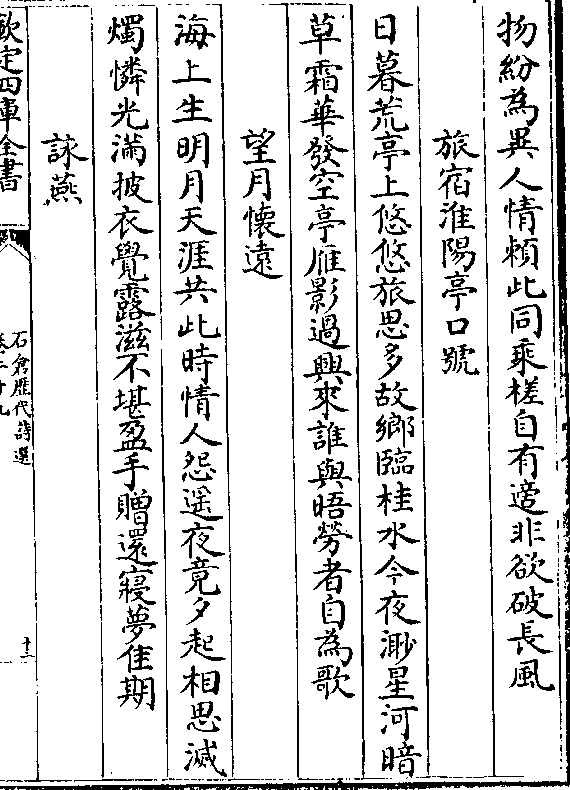 物紛為異人情頼此同乘槎自有適非欲破長風
旅宿淮陽亭口號
日暮荒亭上悠悠旅思多故鄉臨桂水今夜渺星河暗
草霜華發空亭雁影過興來誰與晤勞者自為歌
望月懷遠
海上生明月天涯共此時情人怨遥夜竟夕起相思滅
燭憐光滿披衣覺露滋不堪盈手贈還寢夢佳期
詠燕
欽定四庫全書
石倉歷代詩選
十三